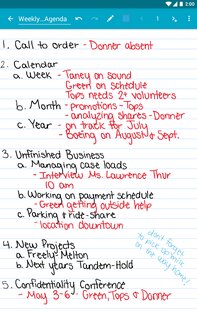 2:00
Weekly...Agenda
1. Call to order - Donner absent
2. Calendar
a. Week - Taney on sound
Green on schedule
Tops needs 2+ volunteers
b. Month - promotions - Tops
- analyzing shares - Donner
c. Year - on track for July
- Boeing on August & Sept.
3. Unfinished Business
a. Managing case loads
- Interview Ms. Lawrence Thur
10 am
b. Working on payment schedule
- Green getting outside help
c. Parking & ride-share
- location downtown
4. New Projects
a. Freely-Melton
b. Next years Tandem-Hold
don't forget
to pick up milk
on the way home!
5. Confidentiality Conference
- May 3-6 - Green, Tops & Donner